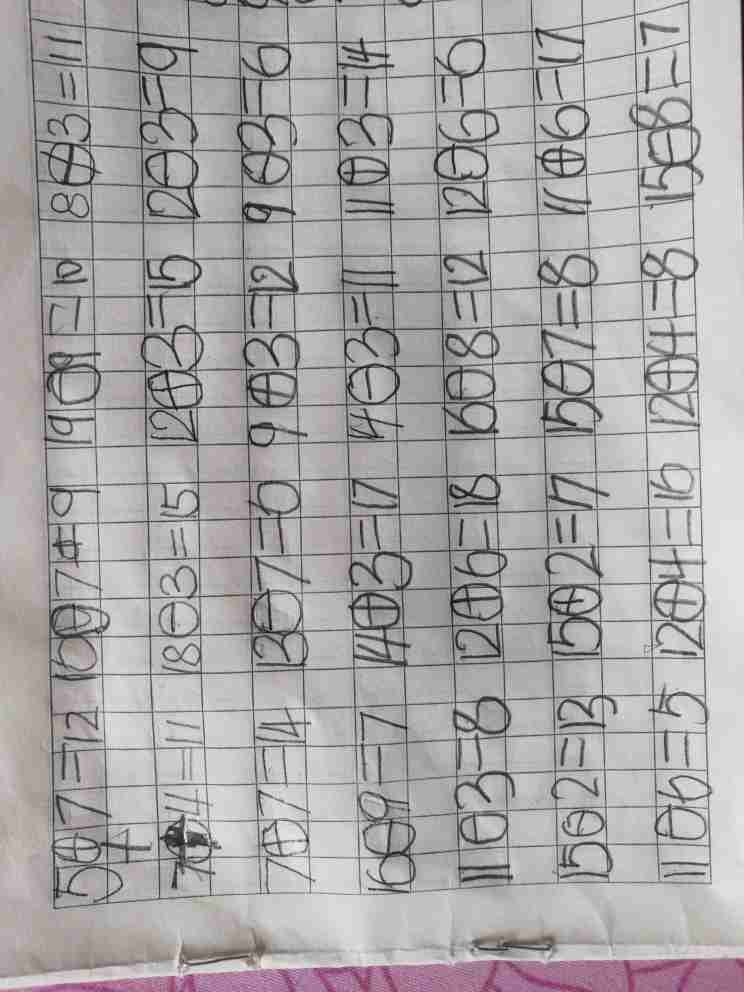 5⊕7=12 16⊖7=9 19⊖9=10 8⊕3=11
7⊕4=11 18⊖3=15 12⊕3=15 12⊖3=9
7⊕7=14 13⊖7=6 9⊕3=12 9⊖3=6
16⊖9=7 14⊕3=17 14⊖3=11 11⊕3=14
11⊖3=8 12⊕6=18 16⊖8=12 12⊖6=6
15⊖2=13 15⊕2=17 15⊖7=8 11⊕6=17
11⊖6=5 12⊕4=16 12⊖4=8 15⊖8=7